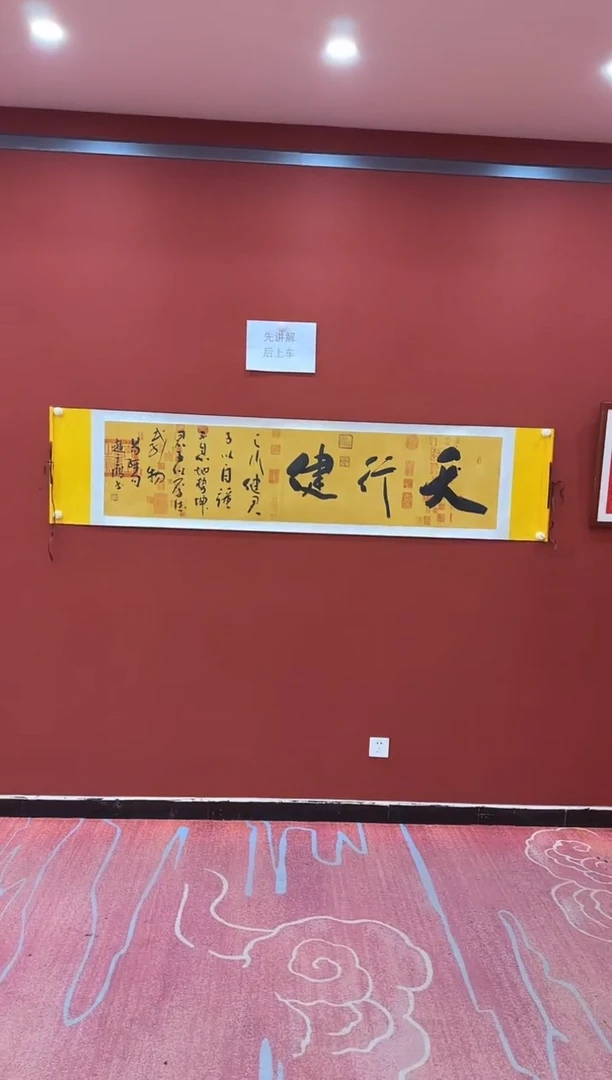 先讲解
后上车
天行健
天行健君
子以自強
不息地勢坤
君子以厚德
載物